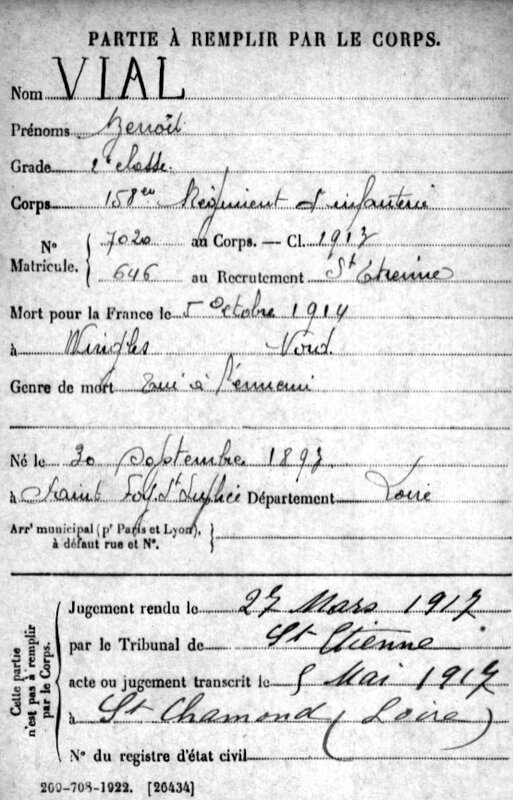 PARTIE À REMPLIR PAR LE CORPS.
Nom VIAL
Prénoms Benoît
Grade 2e classe
Corps 158eme Régiment d'infanterie
N° Matricule. 7020 au Corps. — Cl. 1913
646 au Recrutement St Etienne
Mort pour la France le 5 Octobre 1914
à Wingles Nord
Genre de mort Tué à l'ennemi
Né le 30 Septembre 1893
à Saint Foy St Sulpice Département Loire
Arrt municipal (pr Paris et Lyon),
à défaut rue et N°.
Cette partie
n'est pas à remplir
par le Corps.
Jugement rendu le 27 Mars 1917
par le Tribunal de St Etienne
acte ou jugement transcrit le 5 Mai 1917
à St Chamond (Loire)
N° du registre d'état civil
260-708-1922. [26434]